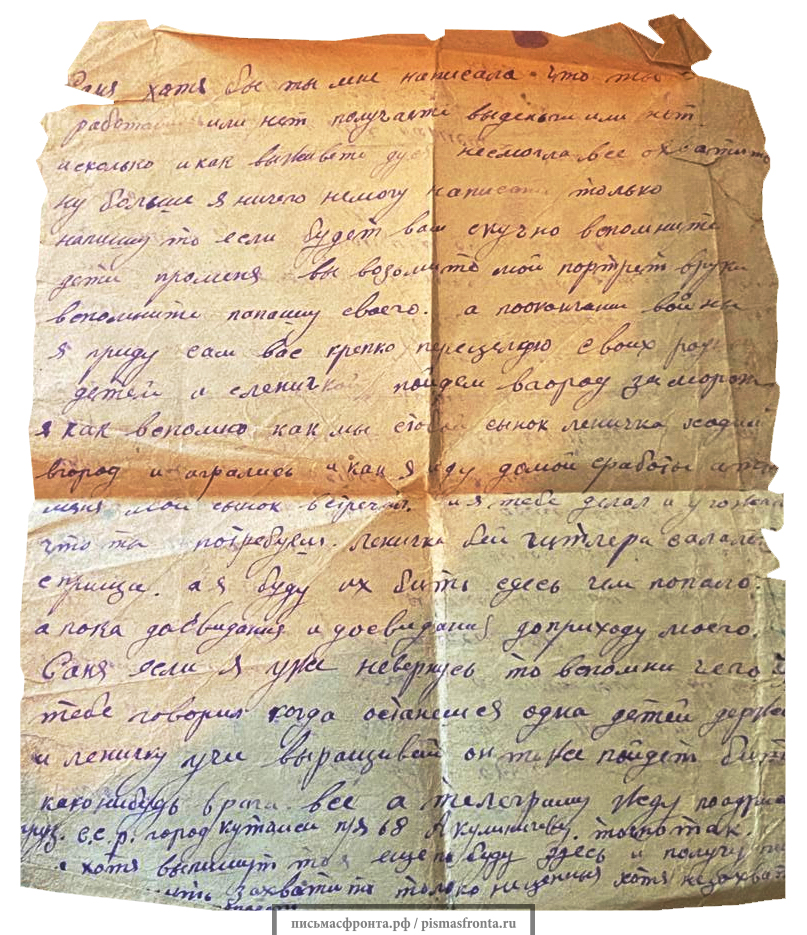 Саня хотя бы ты мне написала что ты
работаеш или нет получаете вы деньги или нет
исколько и как выживете несмогла все охватить
ну больше я ничего немогу написать только
напишу то если будет вам скучно вспомните
дети променя вы возьмите мой портрет вруки
вспомните папашу своего. а поокончании войны
я приду сам вас крепко перецелую своих родных
детей и с леничкой пойдем вгород за морож
я как вспомню как мы стобой сынок леничка ходили
вгород и игрались и как я иду домой сработы а ты
меня мой сынок встречал. и я тебе делал и угожал
что ты потребуеш. леничка бей гитлера
а я буду их бить сдесь чем попало.
а пока досвидания и досвидания доприходу моего.
Саня если я уже невернусь то вспомни чего я
тебе говорил когда останешся одна детей держи
и леничку учи выращивай он тоже пойдет бить
каконибудь врага. все а телеграму жду поадресу
груз. с.с.р. город кутаиси п/я 68 Акулиничеву. точно так.
хотя вышлют то я еще буду здесь и получу
захватит то только хотя незахват
письмасфронта.рф / pismasfronta.ru